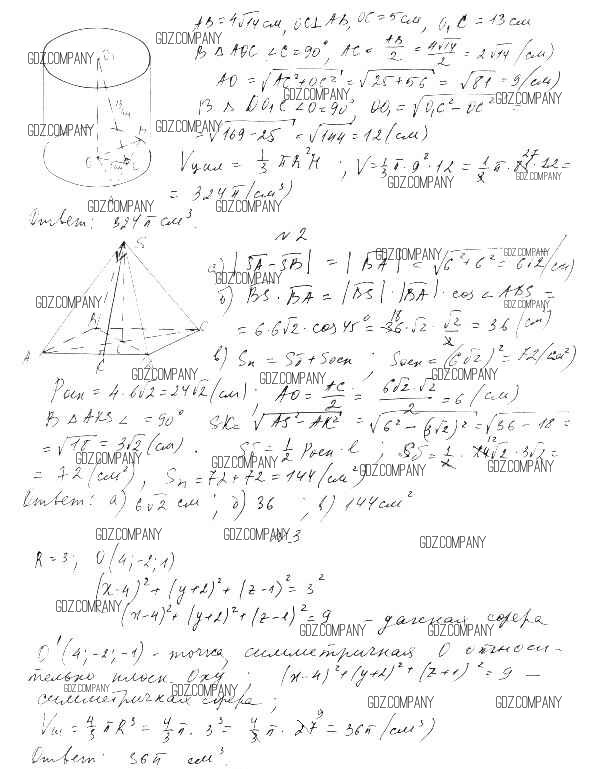 AB = 4√14 см, OC⊥AB, OC = 5 см, O₁C = 13 см
В △ AOC ∠C = 90°, AC = AB/2 = 4√14/2 = 2√14 (см)
AO = √(AC² + OC²) = √(25+56) = √81 = 9 (см)
В △ OO₁C ∠O = 90°, OO₁ = √(O₁C² − OC²) =
= √(169−25) = √144 = 12 (см)
Vцил = 1/3 πR²H ; V = 1/3 π·9²·12 = 1/3 π·81·12 =
= 324π (см³)
Ответ: 324π см³.
№2
а) |SA − SB| = |BA| = √(6²+6²) = 6√2 (см)
б) BS · BA = |BS| · |BA| · cos ∠ABS =
= 6·6√2 · cos 45° = 36·√2 · √2/2 = 36 (см)
в) Sп = Sб + Sосн ; Sосн = (6√2)² = 72 (см²)
Pосн = 4·6√2 = 24√2 (см) ; AO = AC/2 = 6√2·√2/2 = 6 (см)
В △ AKS ∠ = 90° SK = √(AS² − AK²) = √(6² − (3√2)²) = √(36 − 18) =
= √18 = 3√2 (см). Sб = 1/2 Pосн·l ; Sб = 1/2 · 24√2 · 3√2 =
= 72 (см²), Sп = 72 + 72 = 144 (см²)
Ответ: а) 6√2 см ; б) 36 ; в) 144 см²
№3
R = 3 ; O (4; -2; 1)
(x−4)² + (y+2)² + (z−1)² = 3²
(x−4)² + (y+2)² + (z−1)² = 9 – данная сфера
O'(4; -2; -1) – точка, симметричная O относи-
тельно плоск. Oxy ; (x−4)² + (y+2)² + (z+1)² = 9 –
симметричная сфера ;
Vш = 4/3 πR³ = 4/3 π · 3³ = 4/3 π · 27 = 36π (см³)
Ответ: 36π см³.
GDZ.COMPANY